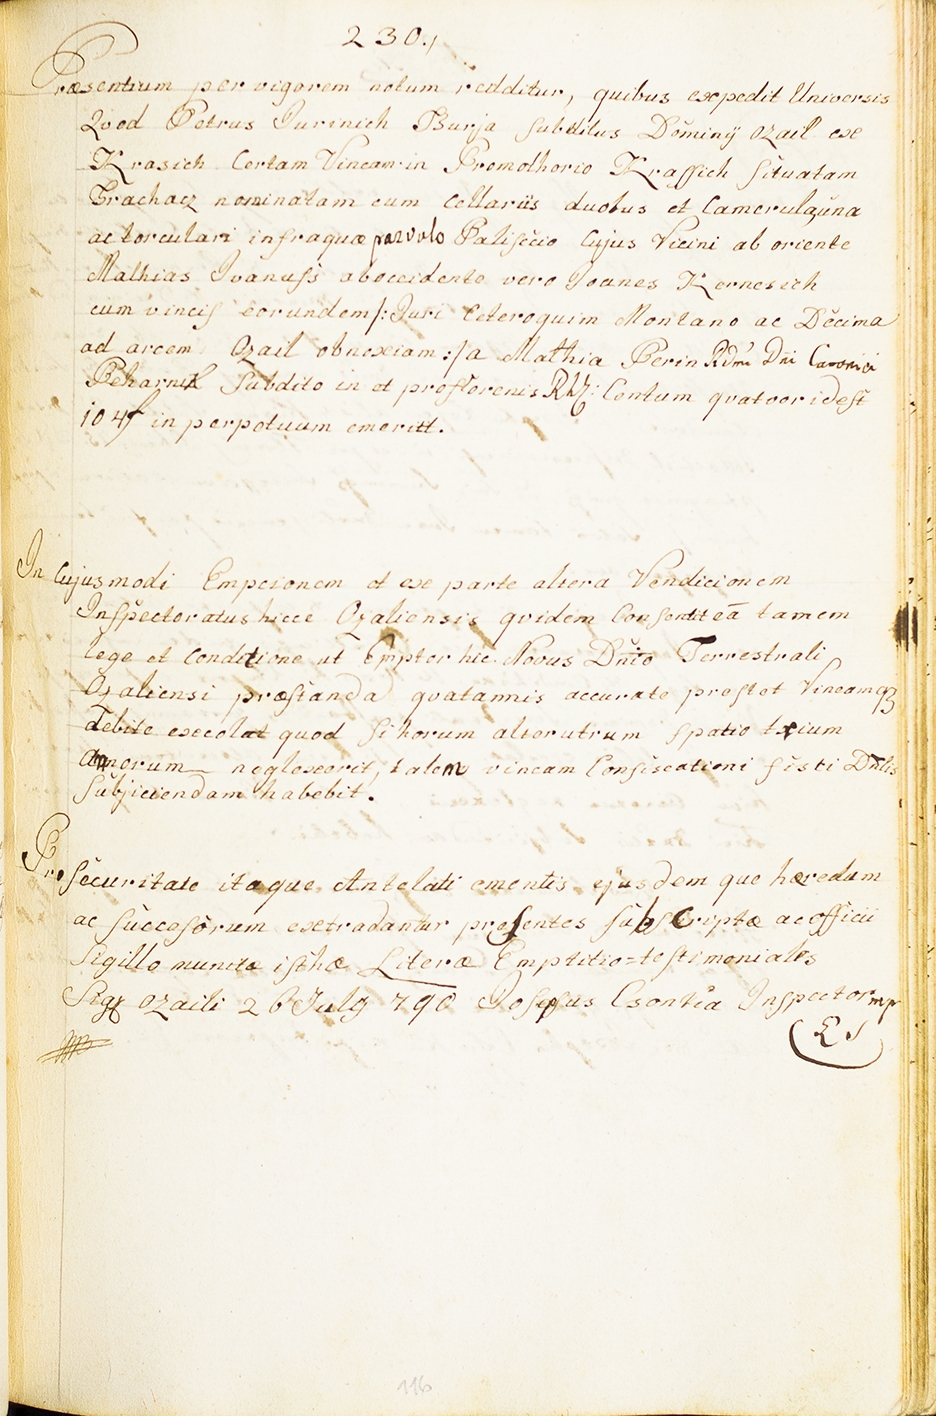 230./
Præsentium per vigorem notum redditur, quibus expedit Universis
Qvod Petrus Jurinich Burja subditus Dominÿ Ozail ex
Krasich Certam Vineam in Promothorio Krassich situatam
Trachacz nominatam cum Cellariis duobus et Camerula una
ac torculari infraquæ parvolo Palificio Cujus Vicini ab oriente
Mathias Ivanussi ab occidente vero Joanes Kernesich
cum vineis eorundem /: Juri Ceteroquim Montano ac Decima
ad arcem Ozail obnoxiam :/ a Mathia Perin Rdmi Dni Canonici
Peharnik Subdito in et pro florenis Rh: Centum qvatoor idest
104f in perpotuum emeritt.
In Cujusmodi Empcionem et ex parte altera Vendicionem
Inspectoratus hicce Ozaliensis qvidem Consentit eã tamem
lege et Conditione ut Emptor hic Novus Dnio Terrestrali
Ozaliensi præstanda qvatannis accurate prestet Vineamqз
debite excolat quod si horum alterutrum spatio trium
annorum neglexerit, talem vineam Consiscationi fisti Dnlis
Subjiciendam habebit.
Pro securitate itaque Antelati ementis ejusdem que hæredum
ac succesorum extradantur presentes subscriptæ ac officii
Sigillo munitæ isthæ Literæ Emptitio=testimoniales
Sigz Ozaili 26 Julÿ 790 Josephus Csontia Inspector mp
(L S
116